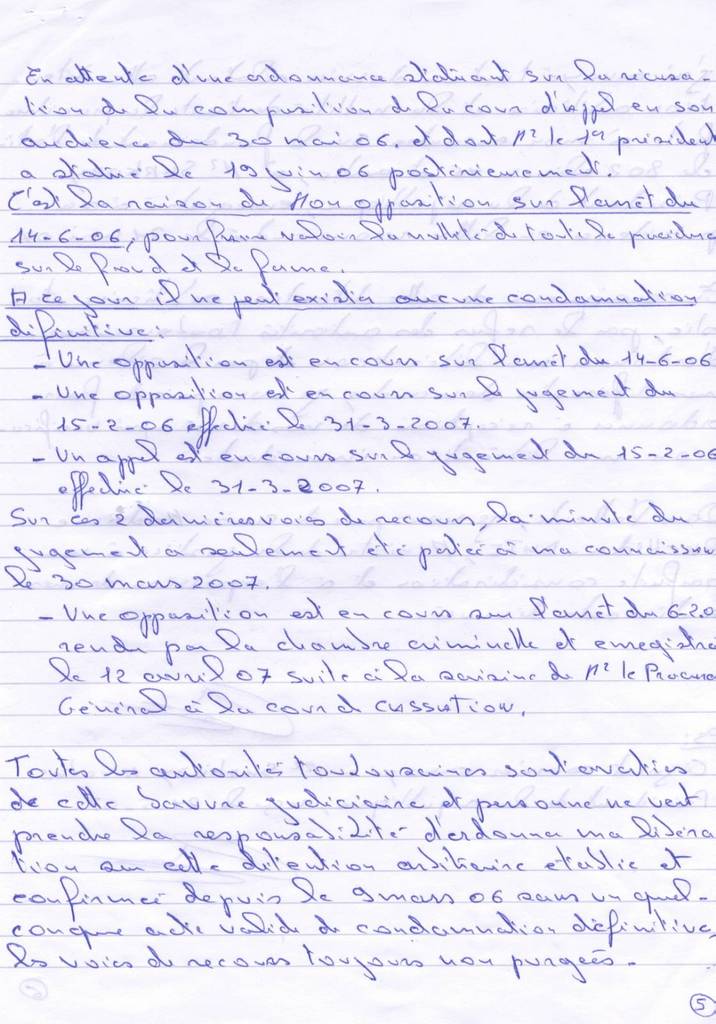 En attente d'une ordonnance statuant sur la récusa-
tion de la composition de la cour d'appel en son
audience du 30 mai 06. et dont Mr le 1er président
a statué le 19 juin 06 postérieurement.
C'est la raison de mon opposition sur l'arrêt du
14-6-06, pour faire valoir la nullité de toute la procédure
sur le fond et la forme.
A ce jour il ne peut exister aucune condamnation
définitive:
- Une opposition est en cours sur l'arrêt du 14-6-06
- Une opposition est en cours sur le jugement du
15-2-06 effectué le 31-3-2007.
- Un appel est en cours sur le jugement du 15-2-06
effectué le 31-3-2007.
Sur ces 2 dernières voies de recours, la minute du
jugement a seulement été portée à ma connaissan
le 30 mars 2007.
- Une opposition est en cours sur l'arrêt du 6-2.0
rendu par la chambre criminelle et enregistré
le 12 avril 07 suite à la saisine de Mr le Procure
Général à la cour d cassation.
Toutes les autorités toulousaines sont averties
de cette bavure judiciaire et personne ne veut
prendre la responsabilité d'ordonner ma libéra
tion sur cette détention arbitraire établie et
confirmée depuis le 9 mars 06 sans un quel-
conque acte valide de condamnation définitive,
les voies de recours toujours non purgées.
5